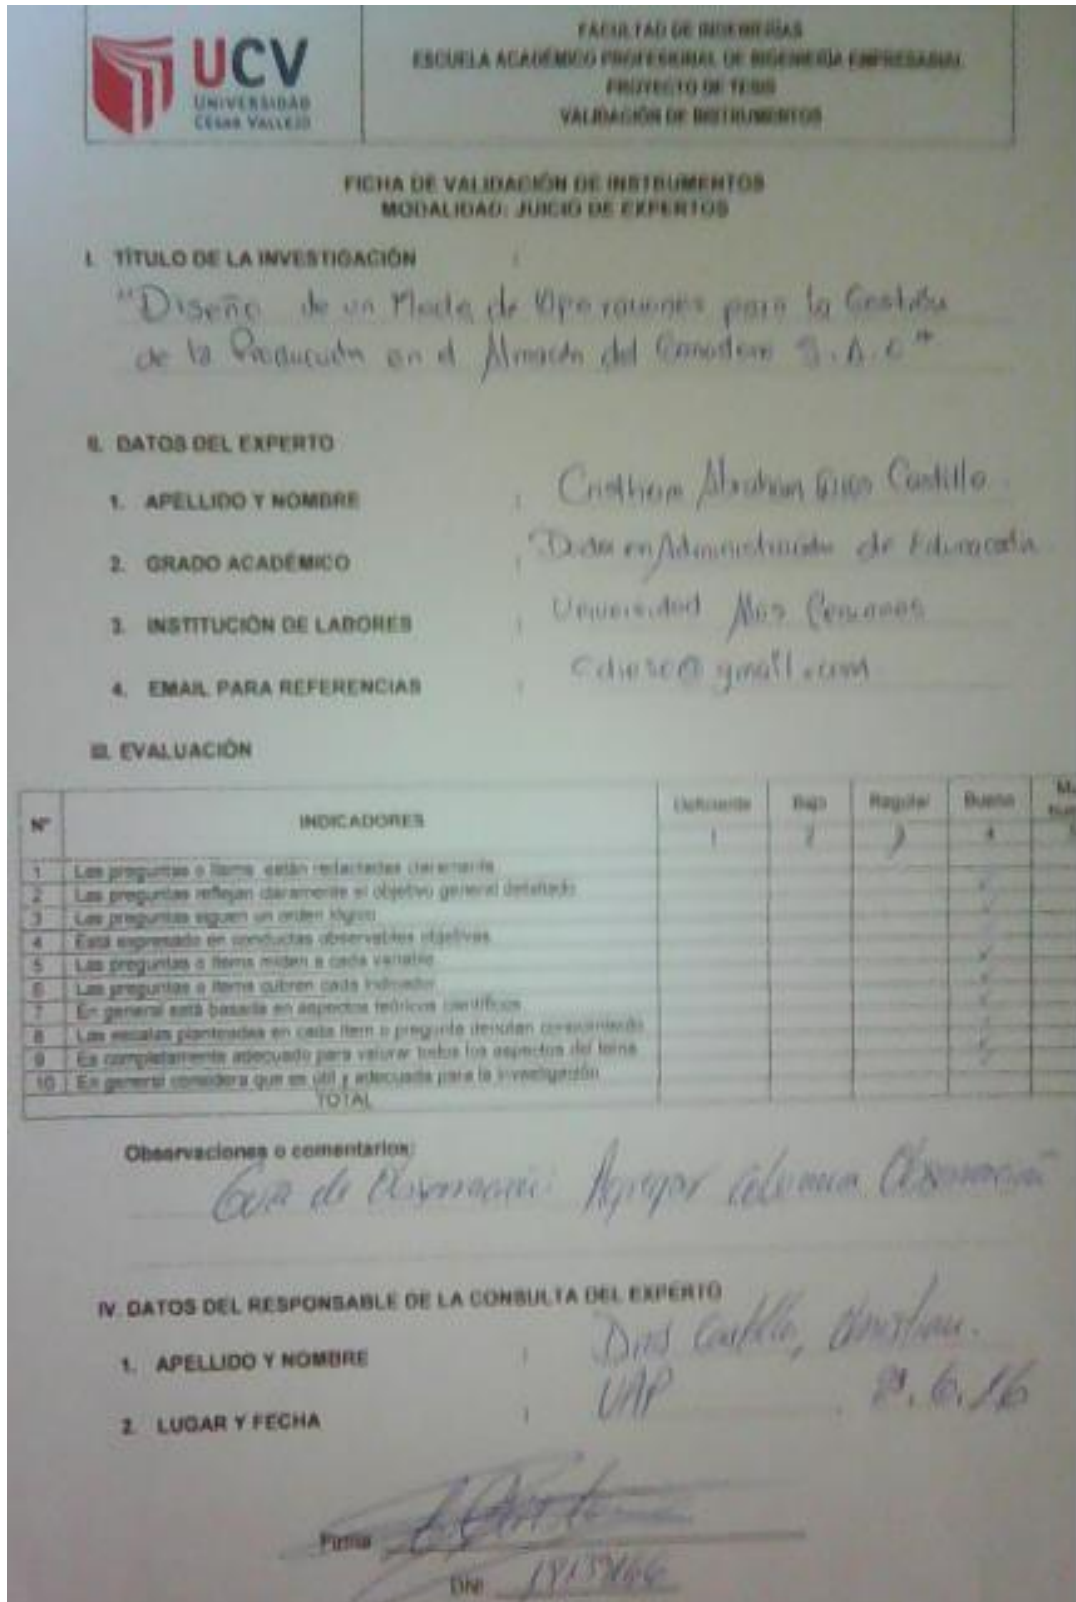 UCV
UNIVERSIDAD
CÉSAR VALLEJO
FACULTAD DE INGENIERÍAS
ESCUELA ACADÉMICO PROFESIONAL DE INGENIERÍA EMPRESARIAL
PROYECTO DE TESIS
VALIDACIÓN DE INSTRUMENTOS
FICHA DE VALIDACIÓN DE INSTRUMENTOS
MODALIDAD: JUICIO DE EXPERTOS
I. TÍTULO DE LA INVESTIGACIÓN :
"Diseño de un de Operaciones para la Gestión
de la Producción en el Almacén del S.A.C"
II. DATOS DEL EXPERTO
1. APELLIDO Y NOMBRE : Abraham Castillo
2. GRADO ACADÉMICO : en Administración de Educación
3. INSTITUCIÓN DE LABORES : Universidad Alas Peruanas
4. EMAIL PARA REFERENCIAS :
III. EVALUACIÓN
Nº INDICADORES Deficiente Bajo Regular Bueno
1 2 3 4
1 Las preguntas o ítems están redactadas claramente
2 Las preguntas reflejan claramente el objetivo general detallado
3 Las preguntas siguen un orden lógico
4 Está expresado en conductas observables objetivas
5 Las preguntas o ítems miden a cada variable
6 Las preguntas o ítems cubren cada indicador
7 En general está basada en aspectos teóricos científicos
8 Las escalas planteadas en cada ítem o pregunta denotan
9 Es completamente adecuado para valorar todos los aspectos del tema
10 En general considera que es útil y adecuada para la investigación
TOTAL
Observaciones o comentarios:
Guía de Observación: Agregar columna Observación
IV. DATOS DEL RESPONSABLE DE LA CONSULTA DEL EXPERTO
1. APELLIDO Y NOMBRE : Castillo, Christian.
2. LUGAR Y FECHA : UAP
Firma
DNI